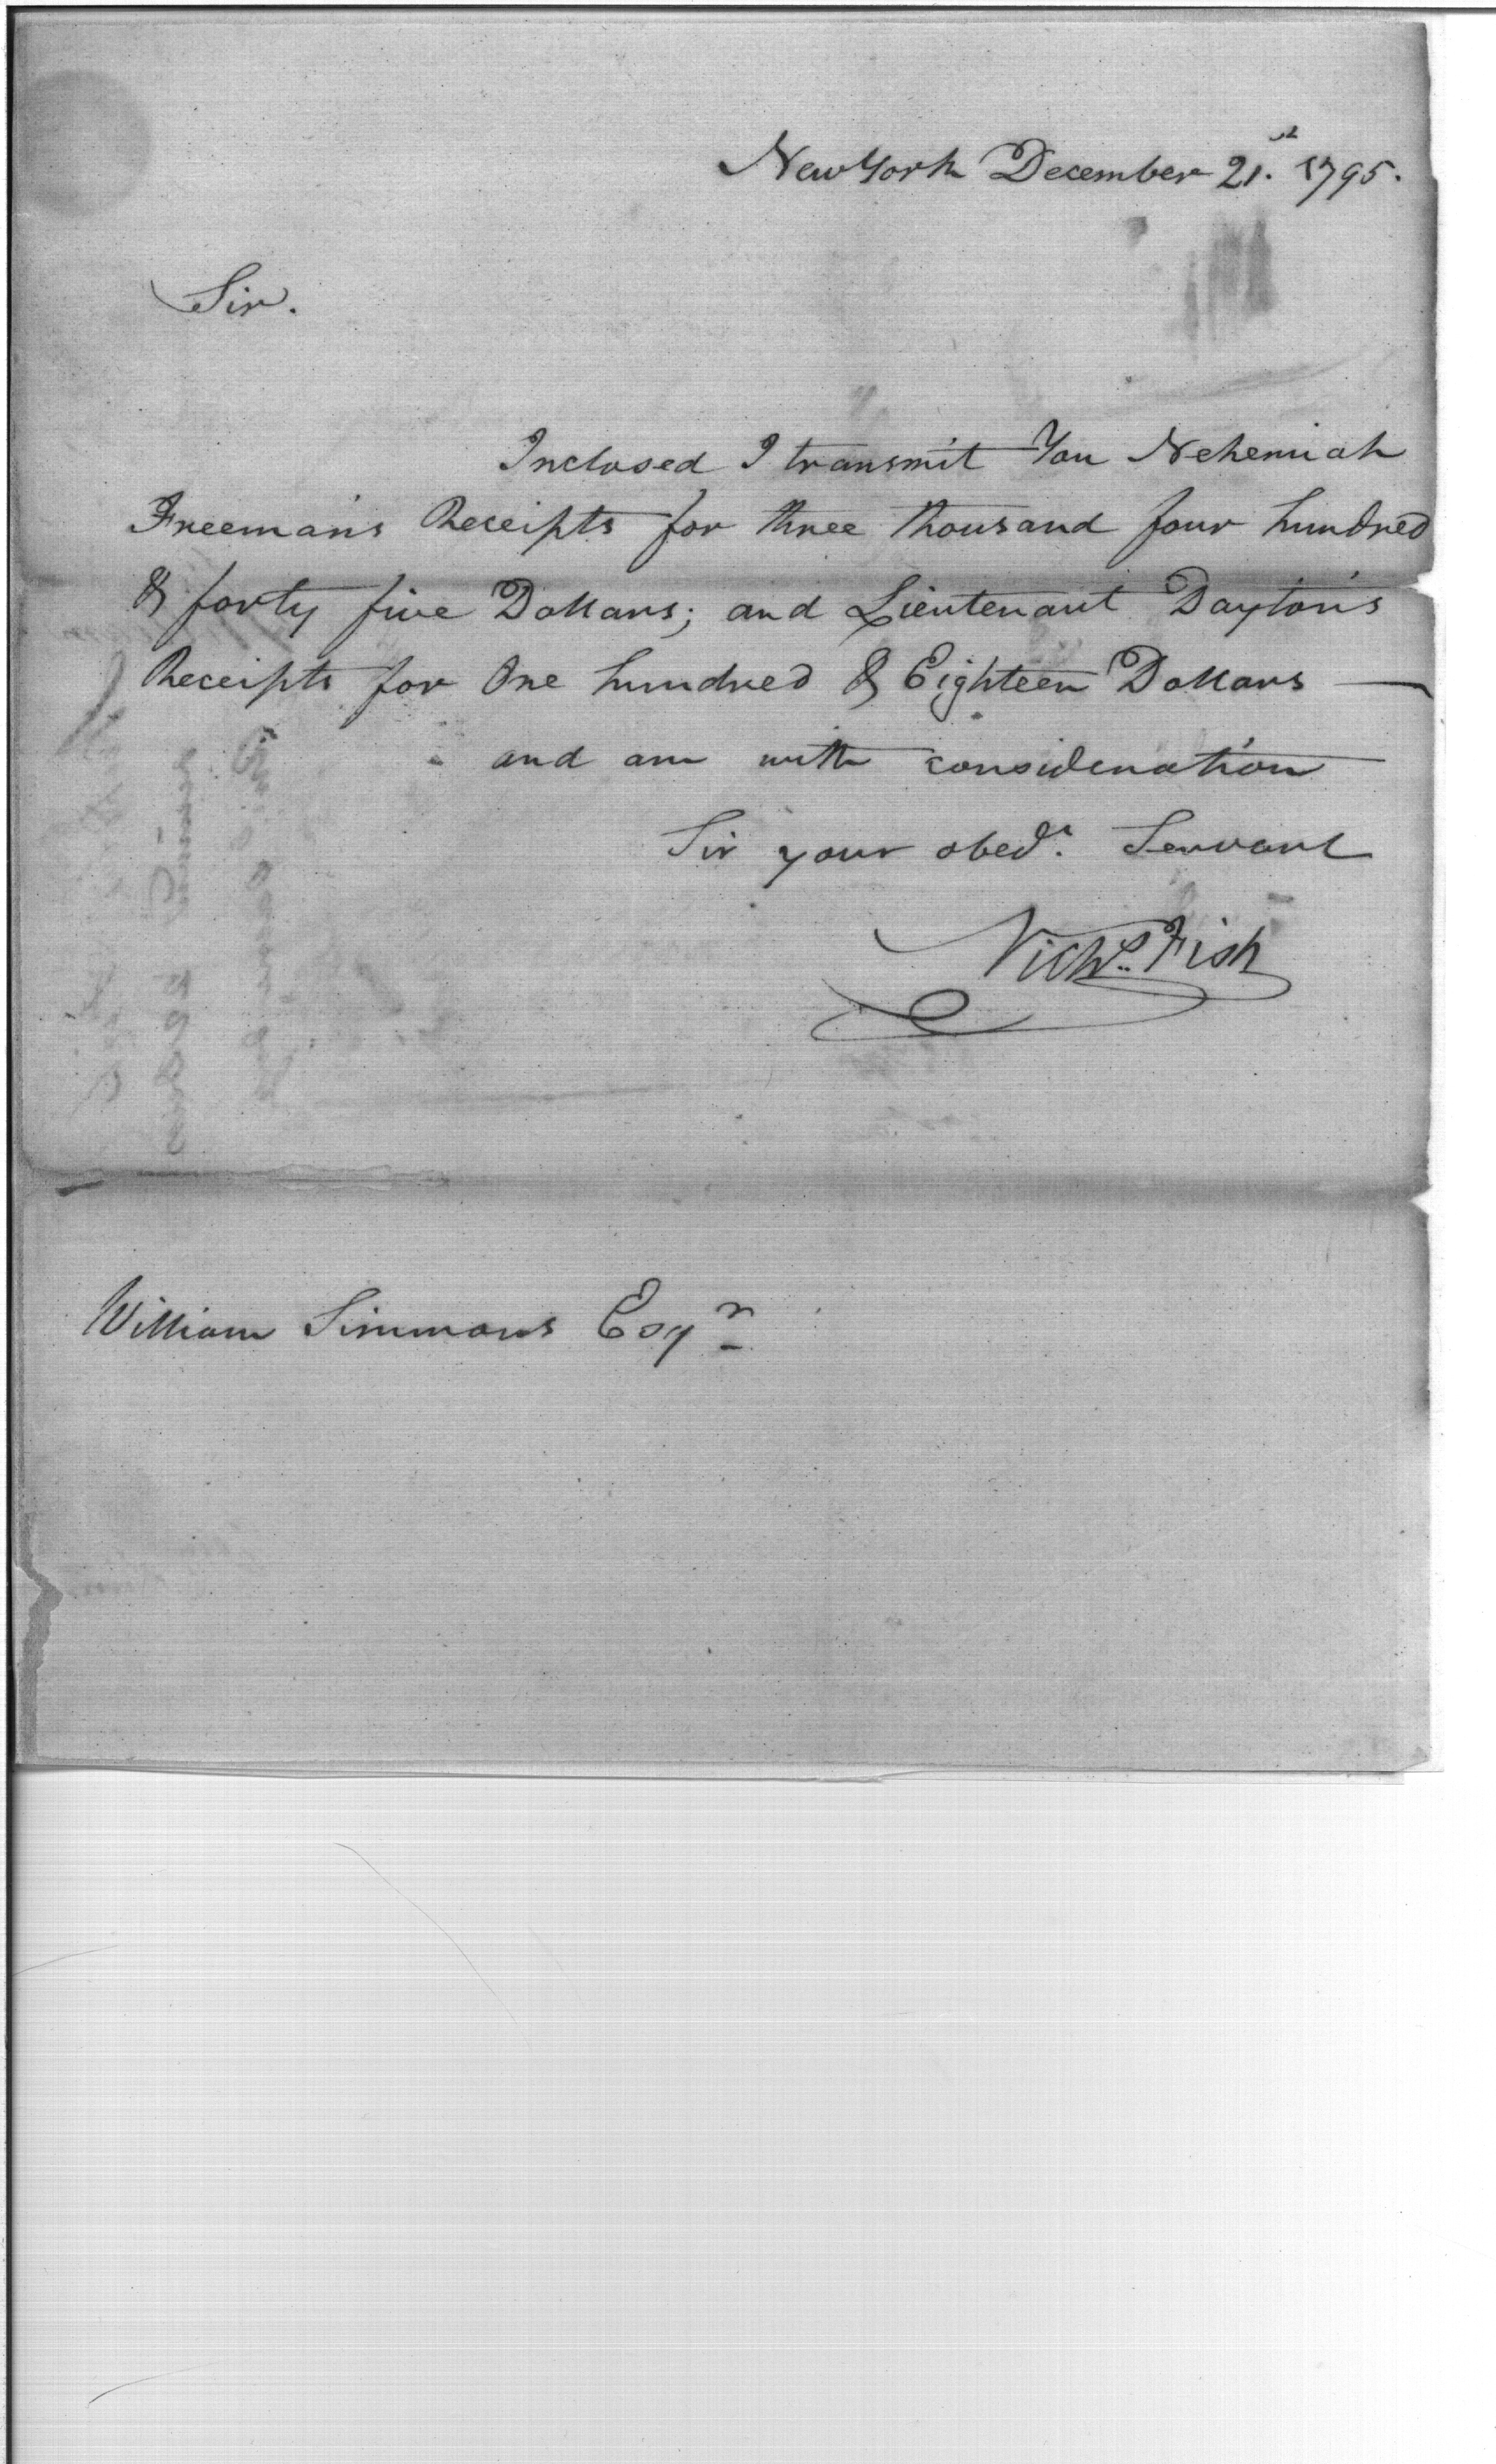 New York December 21.st 1795.
Sir.
Inclosed I transmit You Nehemiah
Freeman's Receipts for three thousand four hundred
& forty five Dollars; and Lieutenant Dayton's
Receipts for One hundred & Eighteen Dollars —
and am with consideration
Sir your obed.t Servant
Nichs. Fish
William Simmons Esqr